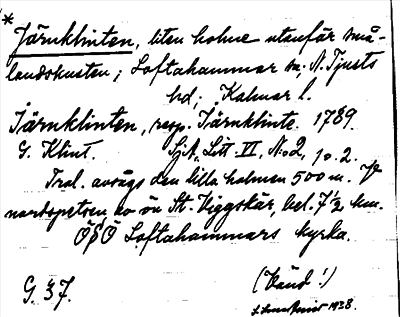 *
Järnklinten, liten holme utanför små-
landskusten; Loftahammar sn; N. Tjusts
hd; Kalmar l.
Järnklinten, resp. Järnklinte. 1789.
G. Klint. Sjök. Litt. VI, N. 2, 10. 2.
Trol. avsågs den lilla holmen 500 m. V
nordspetsen av ön St. Viggskär, bel. 7 1/2 km.
ÖSÖ Loftahammars kyrka.
(Vänd!)
G. 37.
1928.